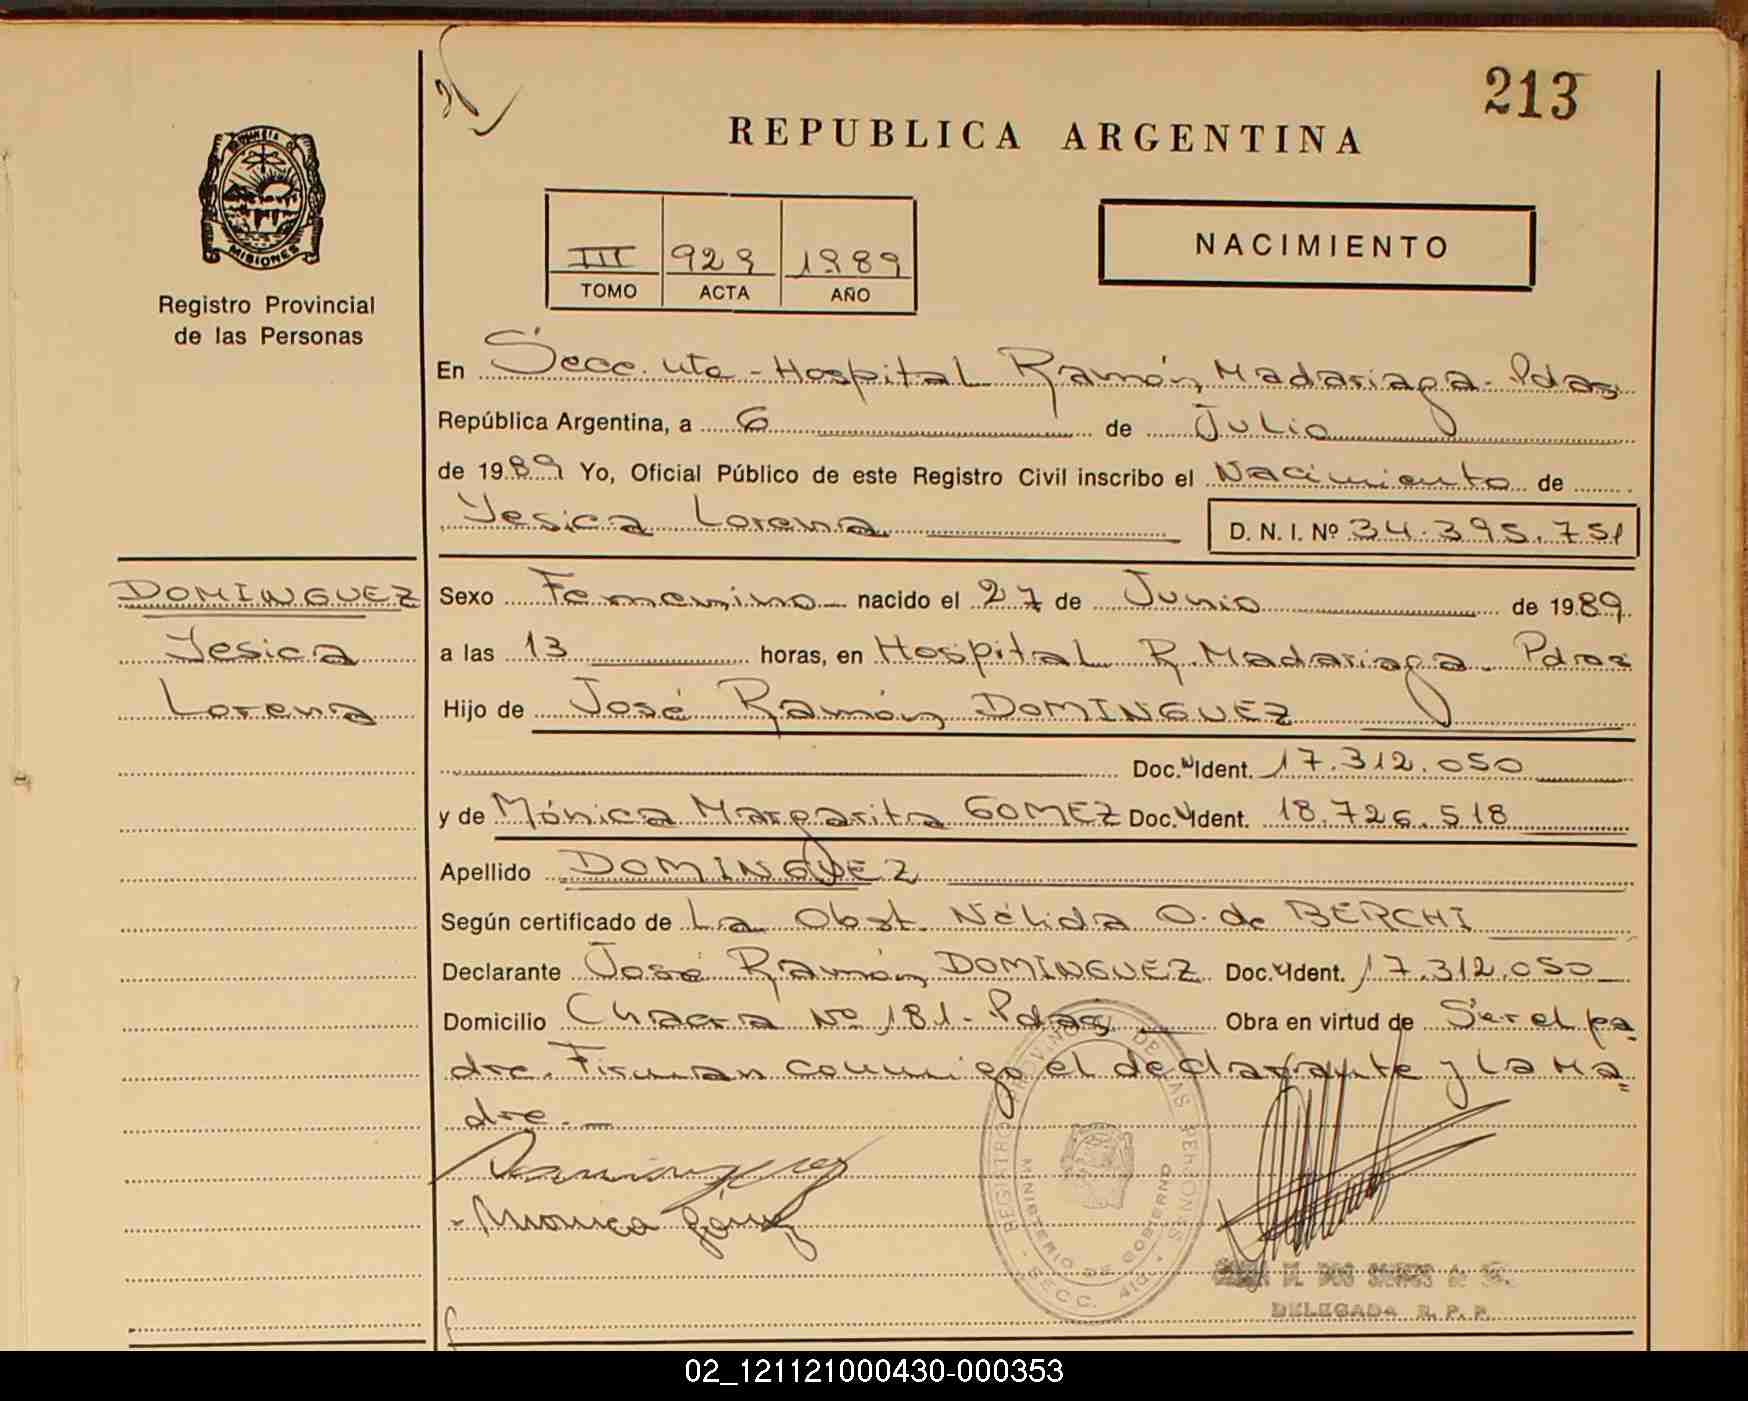 213
REPUBLICA ARGENTINA
MISIONES
Registro Provincial
de las Personas
III 929 1989
TOMO ACTA AÑO
NACIMIENTO
En Secc. 4ta - Hospital Ramón Madariaga - Pdas
República Argentina, a 6 de Julio
de 1989 Yo, Oficial Público de este Registro Civil inscribo el Nacimiento de
Yesica Lorena D. N. I. Nº 34.395.751
DOMINGUEZ
Yesica
Lorena
Sexo Femenino nacido el 27 de Junio de 1989
a las 13 horas, en Hospital R. Madariaga. Pdas
Hijo de José Ramón DOMINGUEZ
Doc. Ident. 17.312.050
y de Mónica Margarita GOMEZ Doc. Ident. 18.726.518
Apellido DOMINGUEZ
Según certificado de La Obst. Nélida O. de BERCHI
Declarante José Ramón DOMINGUEZ Doc. Ident. 17.312.050
Domicilio Chacra Nº 181 - Pdas Obra en virtud de Ser el pa-
dre. Firman conmigo el declarante y la Ma=
dre. -
Monica Gómez
REGISTRO PROVINCIAL DE LAS PERSONAS
MINISTERIO DE GOBIERNO
SECC. 4ta
DOS SANTOS de
DELEGADA R. P. P.
02_121121000430-000353